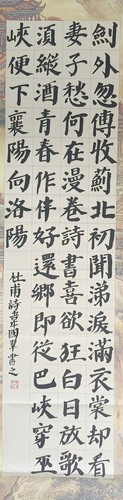 劍外忽傳收薊北初聞涕淚滿衣裳却看
妻子愁何在漫卷詩書喜欲狂白日放歌
湏縱酒青春作伴好還鄉即從巴峽穿巫
峽便下襄陽向洛陽
杜甫詩 國書之